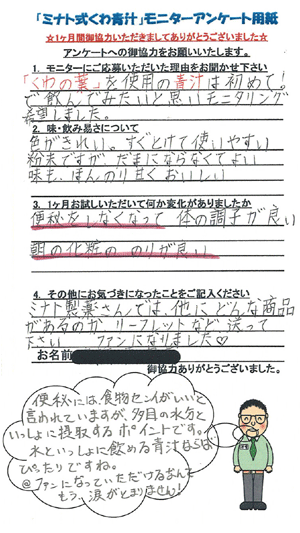 「ミナト式くわ青汁」モニターアンケート用紙
☆1ヶ月間御協力いただきましてありがとうございました☆
アンケートへの御協力をお願いいたします。
1. モニターにご応募いただいた理由をお聞かせ下さい
「くわの葉」を使用の青汁は初めて!
で飲んでみたいと思いモニタリング
希望しました。
2. 味・飲み易さについて
色がきれい。すぐとけて使いやすい
粉末ですが、だまにならなくてよい
味も、ほんのり甘くおいしい
3. 1ヶ月お試しいただいて何か変化がありましたか
便秘をしなくなって 体の調子が良い
朝の化粧の のりが良い
4. その他にお気づきになったことをご記入ください
ミナト製薬さんでは、他にどんな商品
があるのか リーフレットなど、送って
下さい ファンになりました♡
お名前
御協力ありがとうございました。
便秘には、食物センイがいいと
言われていますが、多目の水分と
いっしょに摂取するのポイントです。
水といっしょに飲める青汁ならば
ぴったりですね。
@ファンになっていただけるなんて
もう、涙がとまりません!